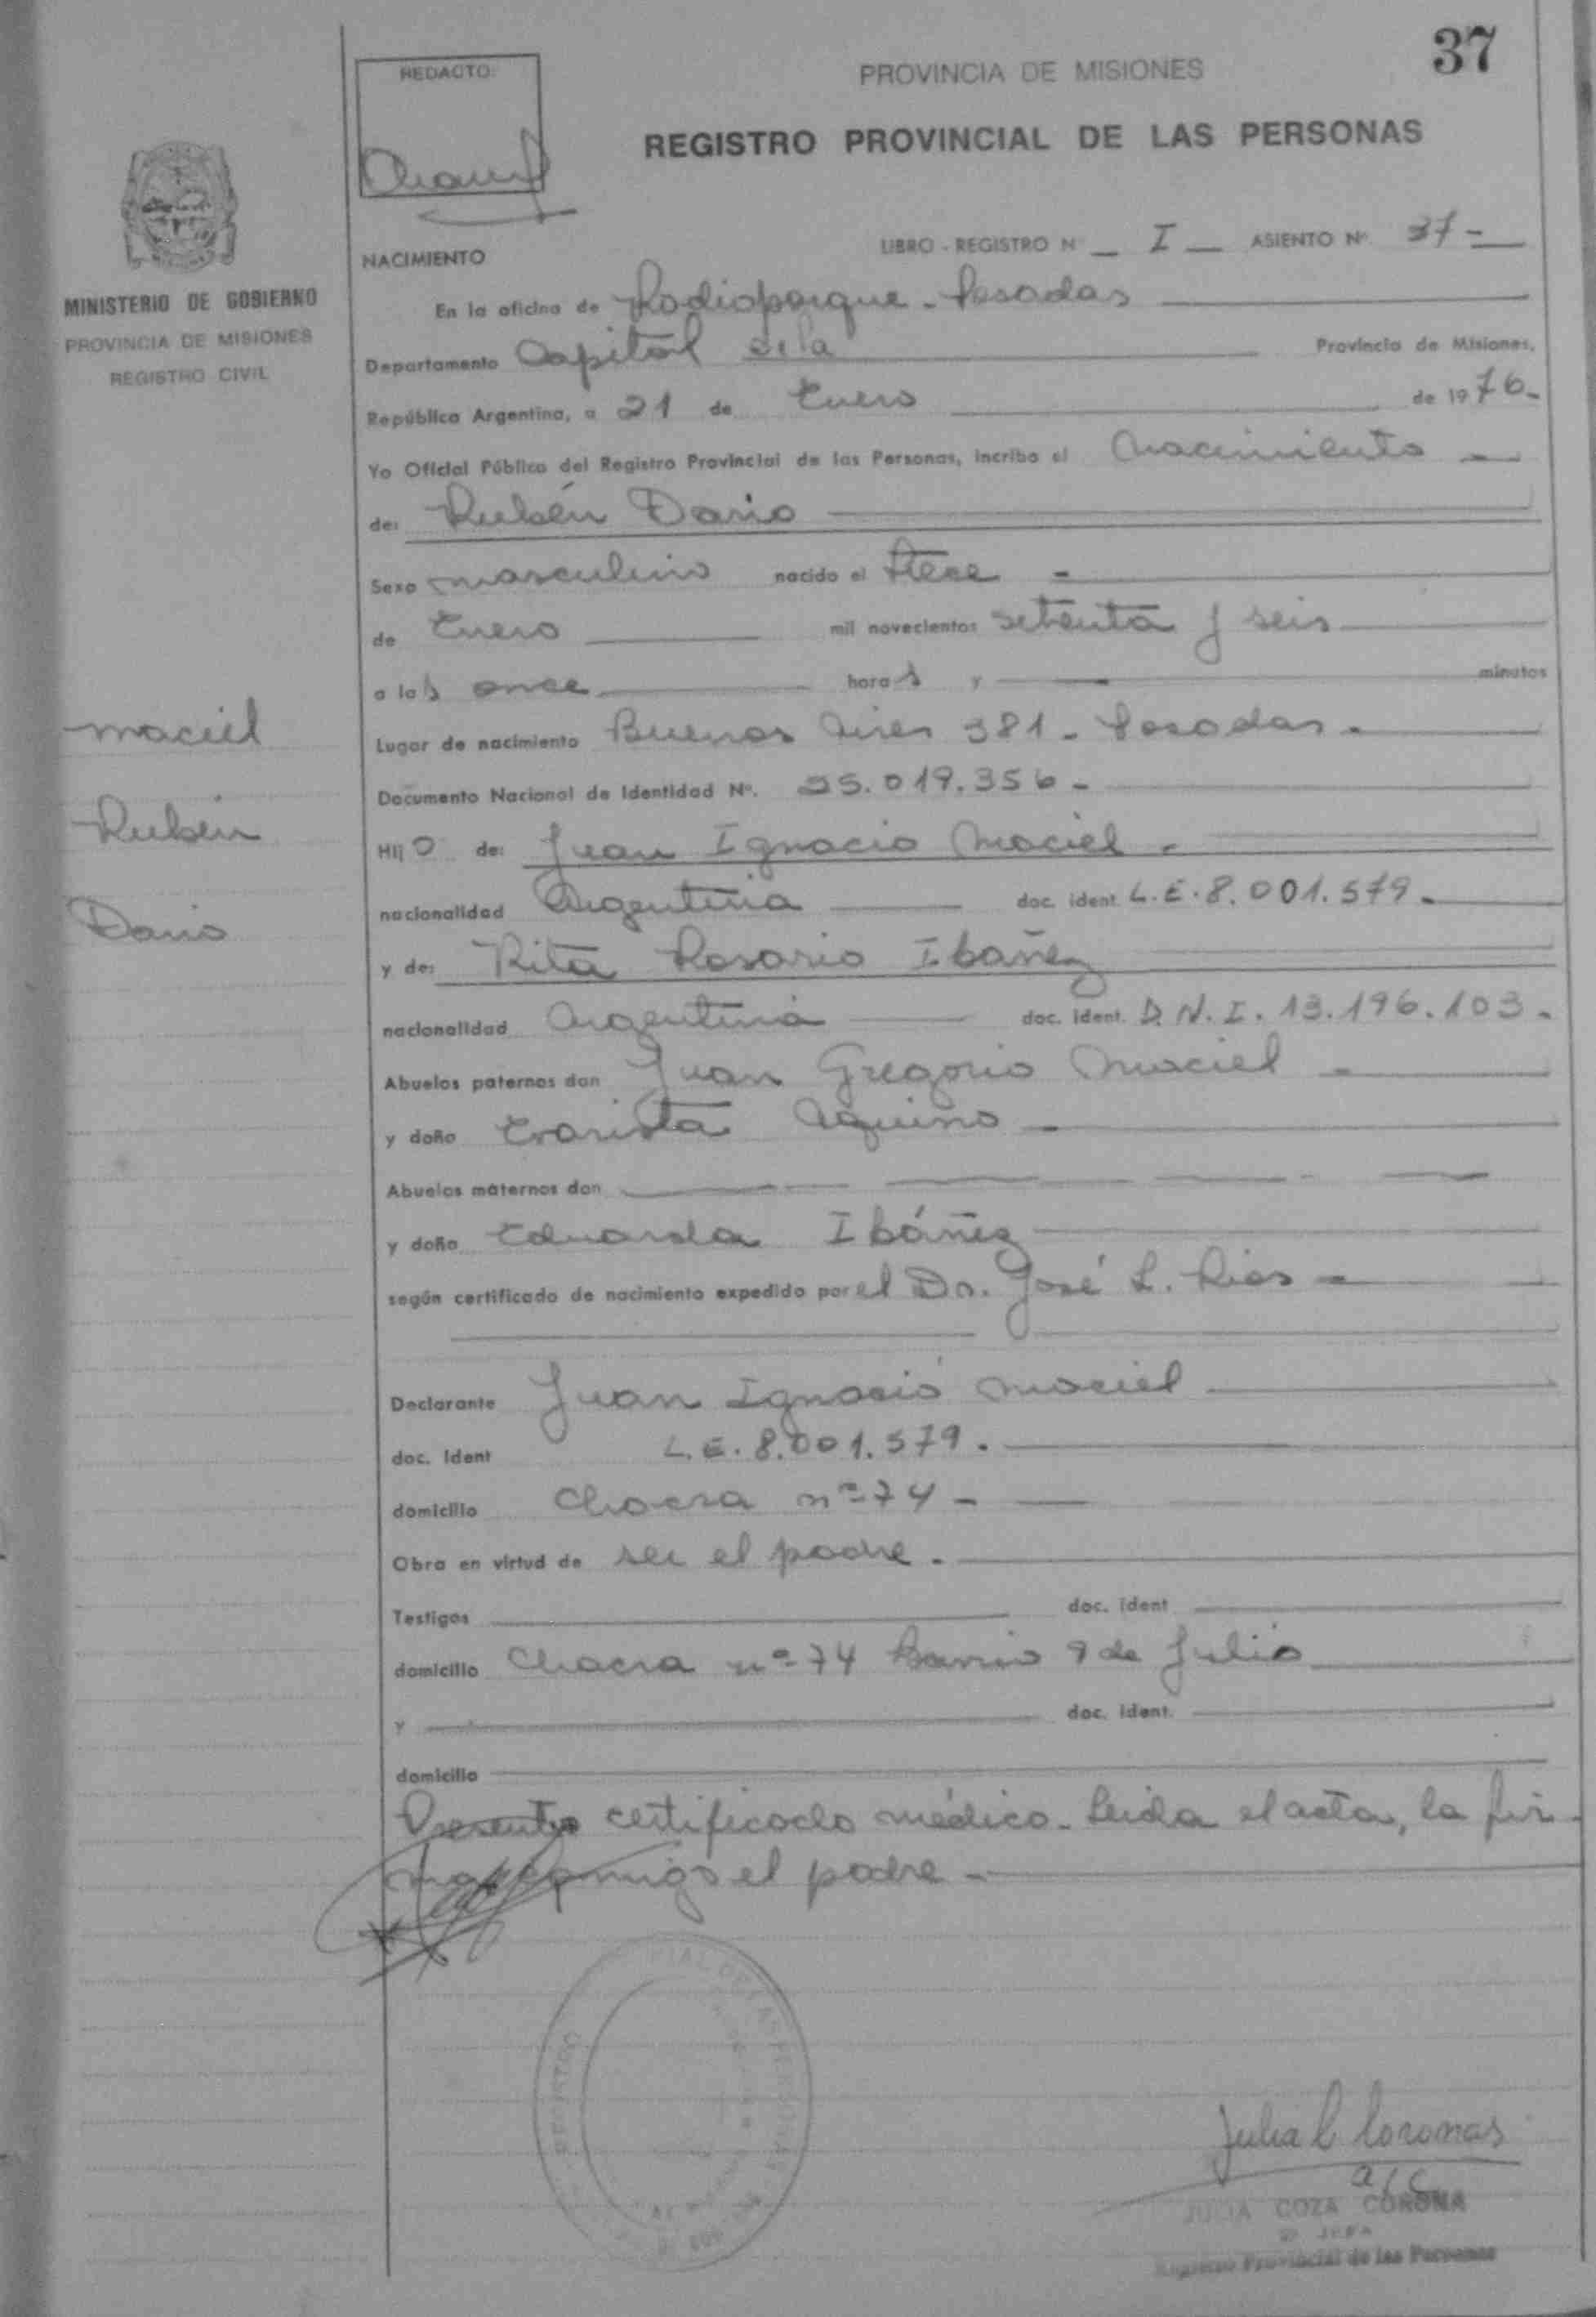 37
REDACTO:
PROVINCIA DE MISIONES
REGISTRO PROVINCIAL DE LAS PERSONAS
MINISTERIO DE GOBIERNO
PROVINCIA DE MISIONES
REGISTRO CIVIL
NACIMIENTO
LIBRO - REGISTRO Nº I ASIENTO Nº 37 -
En la oficina de Radioparque - Posadas
Departamento Capital de la Provincia de Misiones,
República Argentina, a 21 de Enero de 1976.
Yo Oficial Público del Registro Provincial de las Personas, incribo el Nacimiento
de: Rubén Dario
Sexo masculino nacido el trece -
de Enero mil novecientos setenta y seis
a las once horas y minutos
Lugar de nacimiento Buenos Aires 381 - Posadas -
Documento Nacional de Identidad Nº. 25.019.356 -
Maciel
Rubén
Dario
Hijo de: Juan Ignacio Maciel -
nacionalidad Argentina doc. ident. L.E. 8.001.579 -
y de: Rita Rosario Ibañez
nacionalidad Argentina doc. ident. D.N.I. 13.196.103 -
Abuelos paternos don Juan Gregorio Maciel -
y doña Evarista Aquino -
Abuelos maternos don
y doña Eduarda Ibáñez
según certificado de nacimiento expedido por el Dr. José L. Rios -
Declarante Juan Ignacio Maciel
doc. Ident L.E. 8.001.579.
domicilio Chacra nº 74 -
Obra en virtud de ser el padre.
Testigos doc. ident
domicilio Chacra nº 74 Barrio 9 de Julio
y doc. ident.
domicilio
Presenta certificado médico. Leida el acta, la fir-
ma conmigo el padre -
Julia C Coronas
a/c
JULIA COZA CORONA
JEFA
Registro Provincial de las Personas